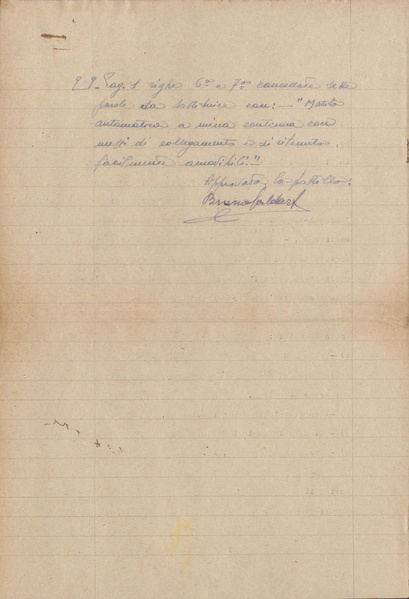 Pag. 1 righe 6ª e 7ª cancellate sette
parole da sostituire con: – "Matita
automatica a mina continua con
mezzi di collegamento e di
facilmente amovibili."
Approvata la postilla:
Bruno